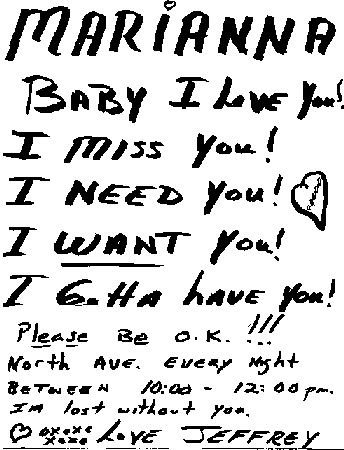 MARIANNA
BABY I Love You!
I MISS You!
I NEED You!
I WANT You!
I GoTTA HAVE You!
Please Be O.K. !!!
North Ave. Every Night
BETWEEN 10:00 - 12:00 pm.
I'm lost without you.
♡ oxoxo xoxo LOVE JEFFREY